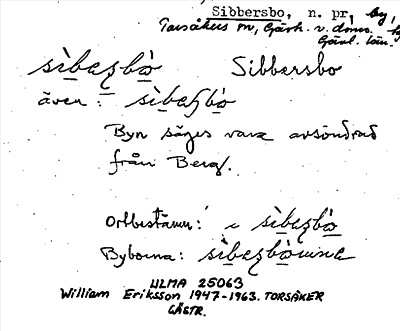 Sibbersbo, n. pr. by,
Torsåkers sn, Gästr. v. doms.
Gävl. län.
sìbezbò Sibbersbo
även: sìbeɧbò
Byn säges vara avsöndrad
från Berg.
Ortbestämn: i sìbezbò
Byborna: sìbezbòuna
ULMA 25063
William Eriksson 1947-1963. TORSÅKER
GÄSTR.